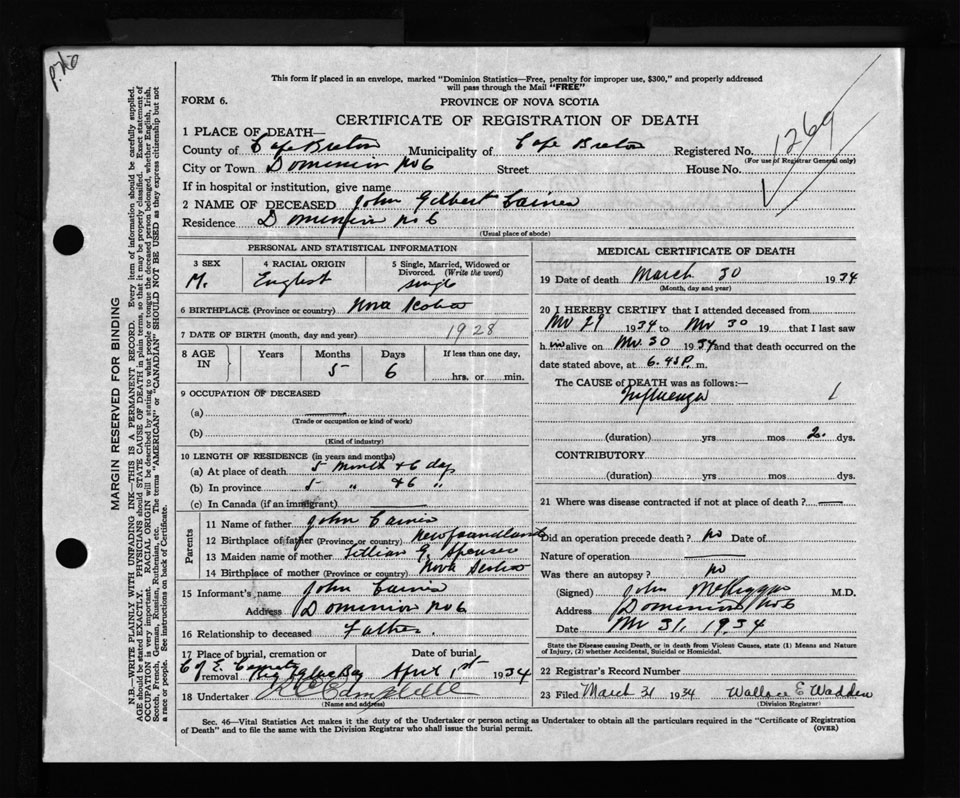 p.no
This form if placed in an envelope, marked "Dominion Statistics—Free, penalty for improper use, $300," and properly addressed
will pass through the Mail "FREE"
FORM 6.
PROVINCE OF NOVA SCOTIA
CERTIFICATE OF REGISTRATION OF DEATH
1269
1 PLACE OF DEATH—
County of Cape Breton Municipality of Cape Breton Registered No.
(For use of Registrar General only)
City or Town Dominion No 6 Street House No.
If in hospital or institution, give name
2 NAME OF DECEASED John Gilbert Caines
Residence Dominion No 6
(Usual place of abode)
PERSONAL AND STATISTICAL INFORMATION
3 SEX 4 RACIAL ORIGIN 5 Single, Married, Widowed or
Divorced. (Write the word)
M. English single
6 BIRTHPLACE (Province or country) Nova Scotia
7 DATE OF BIRTH (month, day and year) 1928
8 AGE IN Years Months Days If less than one day,
5 6 hrs. or min.
9 OCCUPATION OF DECEASED
(a)
(Trade or occupation or kind of work)
(b)
(Kind of industry)
10 LENGTH OF RESIDENCE (in years and months)
(a) At place of death 5 Month & 6 days
(b) In province 5 " & 6 "
(c) In Canada (if an immigrant)
Parents
11 Name of father John Caines
12 Birthplace of father (Province or country) Newfoundland
13 Maiden name of mother Lillian G. Spenser
14 Birthplace of mother (Province or country) Nova Scotia
15 Informant's name John Caines
Address Dominion No 6
16 Relationship to deceased Father.
17 Place of burial, cremation or Date of burial
removal C of E Cemetery April 1st 1934
18 Undertaker Campbell
(Name and address)
MEDICAL CERTIFICATE OF DEATH
19 Date of death March 30 1934
(Month, day and year)
20 I HEREBY CERTIFY that I attended deceased from
Mr 29 1934 to Mr 30 19 that I last saw
h im alive on Mr. 30 1934 and that death occurred on the
date stated above, at 6.45 P. m.
The CAUSE of DEATH was as follows:—
Influenza 1
(duration) yrs mos 2. dys.
CONTRIBUTORY
(duration) yrs mos dys.
21 Where was disease contracted if not at place of death?
Did an operation precede death? no Date of
Nature of operation
Was there an autopsy? no
(Signed) John M.D.
Address Dominion No 6
Date Mr 31, 1934
State the Disease causing Death, or in death from Violent Causes, state (1) Means and Nature
of Injury, (2) whether Accidental, Suicidal or Homicidal.
22 Registrar's Record Number
23 Filed March 31 1934 Wallace E Wadden
(Division Registrar)
Sec. 46—Vital Statistics Act makes it the duty of the Undertaker or person acting as Undertaker to obtain all the particulars required in the "Certificate of Registration
of Death" and to file the same with the Division Registrar who shall issue the burial permit.
(OVER)
MARGIN RESERVED FOR BINDING
N.B.—WRITE PLAINLY WITH UNFADING INK—THIS IS A PERMANENT RECORD. Every item of information should be carefully supplied.
AGE should be stated EXACTLY. PHYSICIANS should STATE CAUSE OF DEATH in plain terms, so that it may be properly classified. Exact statement of
OCCUPATION is very important. RACIAL ORIGIN will be described by stating to what people or tongue the deceased person belonged, whether English, Irish,
Scotch, French, German, Russian, Ruthenian, etc. The terms "AMERICAN" or "CANADIAN" SHOULD NOT BE USED as they express citizenship but not
a race or people. See instructions on back of Certificate.